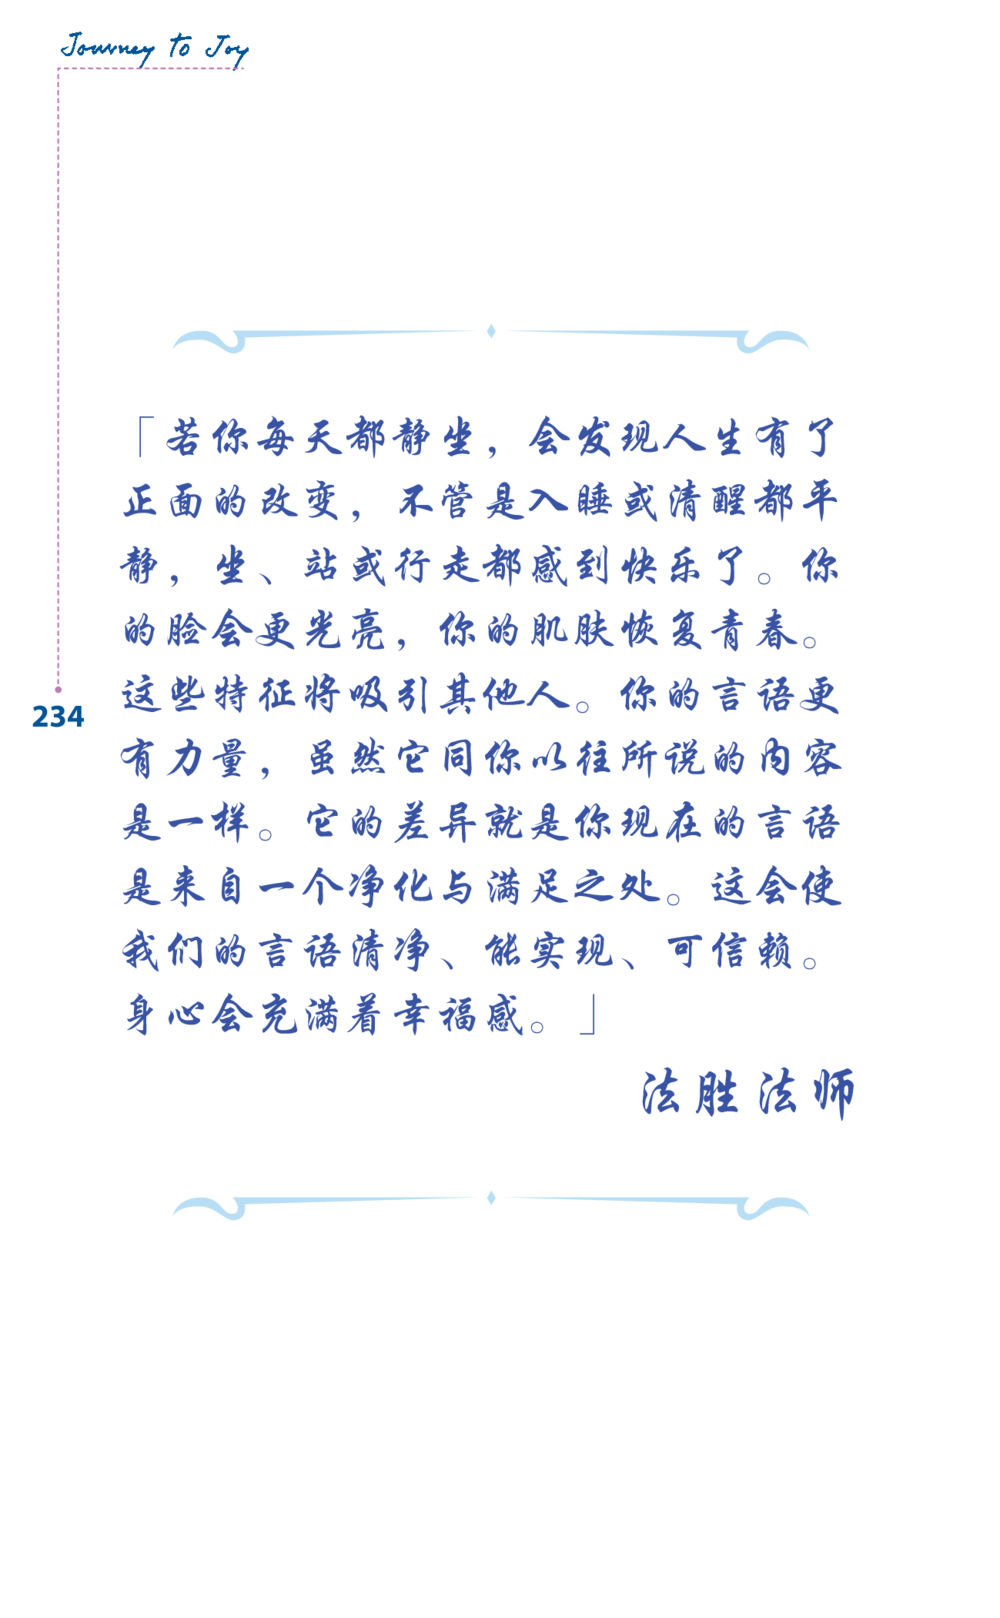 Journey to Joy
「若你每天都静坐，会发现人生有了
正面的改变，不管是入睡或清醒都平
静，坐、站或行走都感到快乐了。你
的脸会更光亮，你的肌肤恢复青春。
这些特征将吸引其他人。你的言语更
有力量，虽然它同你以往所说的内容
是一样。它的差异就是你现在的言语
是来自一个净化与满足之处。这会使
我们的言语清净、能实现、可信赖。
身心会充满着幸福感。」
法胜法师
234